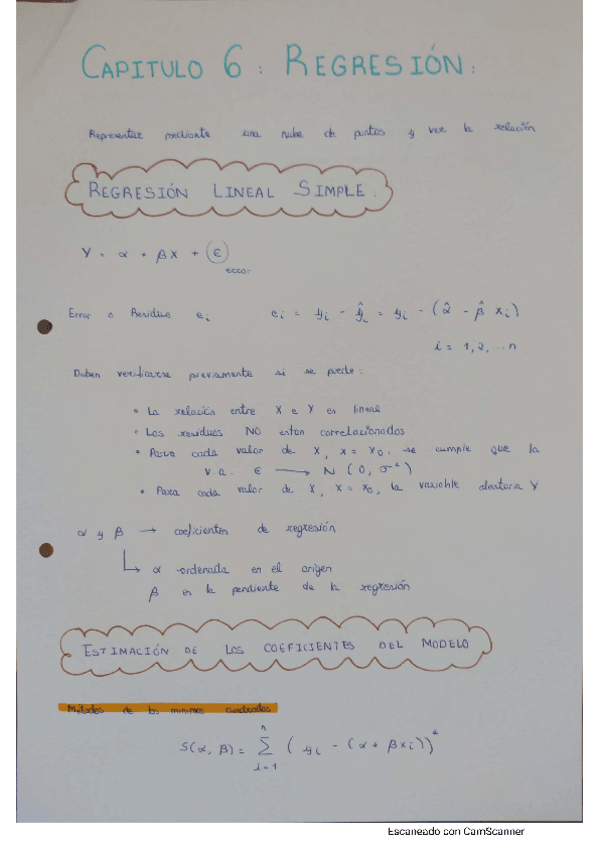 CAPITULO 6 : REGRESIÓN :
Representar mediante una nube de puntos y ver la relación
REGRESIÓN LINEAL SIMPLE.
Y = α + βX + ϵ
error
Error o Residuo e_i e_i = y_i - ŷ_i = y_i - (α̂ - β̂ x_i)
i = 1,2,...n
Deben verificarse previamente si se puede:
• La relación entre X e Y es lineal
• Los residuos NO estan correlacionados
• Para cada valor de X, X = X₀, se cumple que la
v.a. ϵ → N (0, σ²)
• Para cada valor de X, X = X₀, la variable aleatoria Y
α y β → coeficientes de regresión
↳ α ordenada en el origen
β es la pendiente de la regresión
ESTIMACIÓN DE LOS COEFICIENTES DEL MODELO
Métodos de los mínimos cuadrados
S(α, β) = Σ_{i=1}^{n} (y_i - (α + βx_i))²
Escaneado con CamScanner